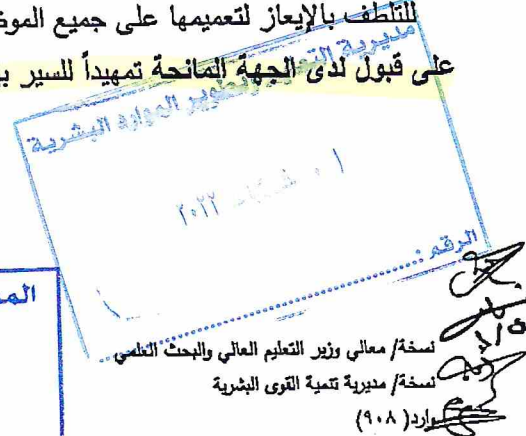 للتلطف بالإيعاز لتعميمها على جميع الموظ
على قبول لدى الجهة المانحة تمهيداً للسير ب
مديرية وتطوير الموارد البشرية
٢٠٢٢
الرقم :
الم
نسخة/ معالي وزير التعليم العالي والبحث العلمي
نسخة/ مديرية تنمية القوى البشرية
وارد( ٩٠٨)